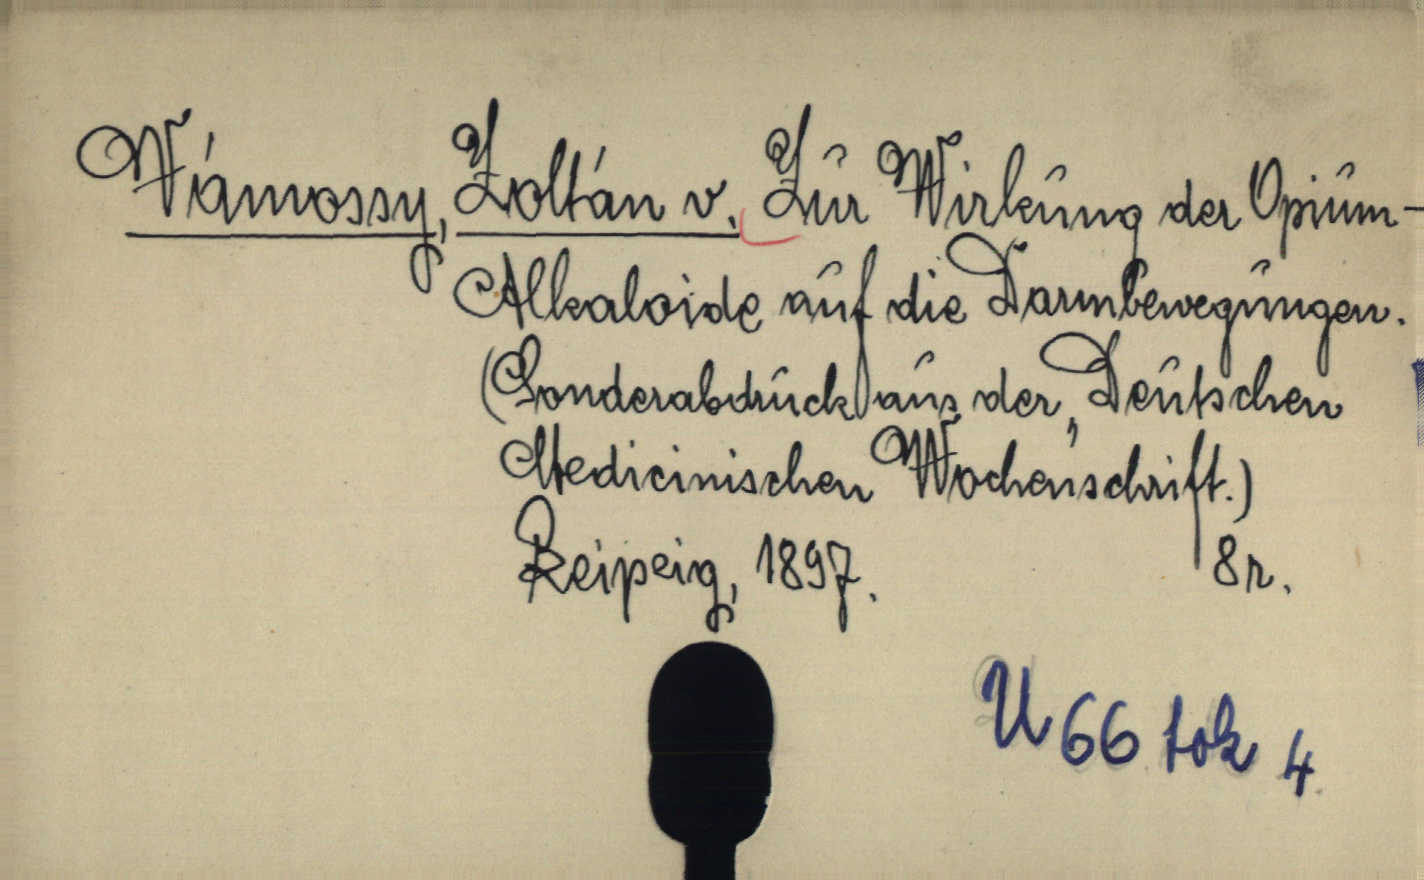 Vámossy, Zoltán v. Zur Wirkung der Opium-
Alkaloide auf die Darmbewegungen.
(Sonderabdruck aus der „Deutschen
Medicinischen Wochenschrift.)
Leipzig, 1897. 8r.
U 66 tok 4.